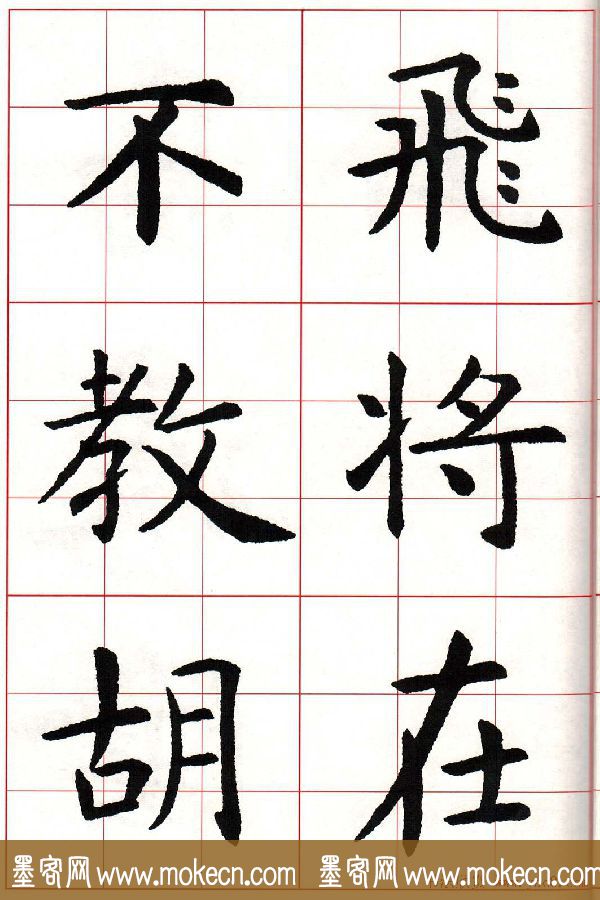 飛将在
不教胡
墨客网 www.mokecn.com 墨客网 www.mokecn.com